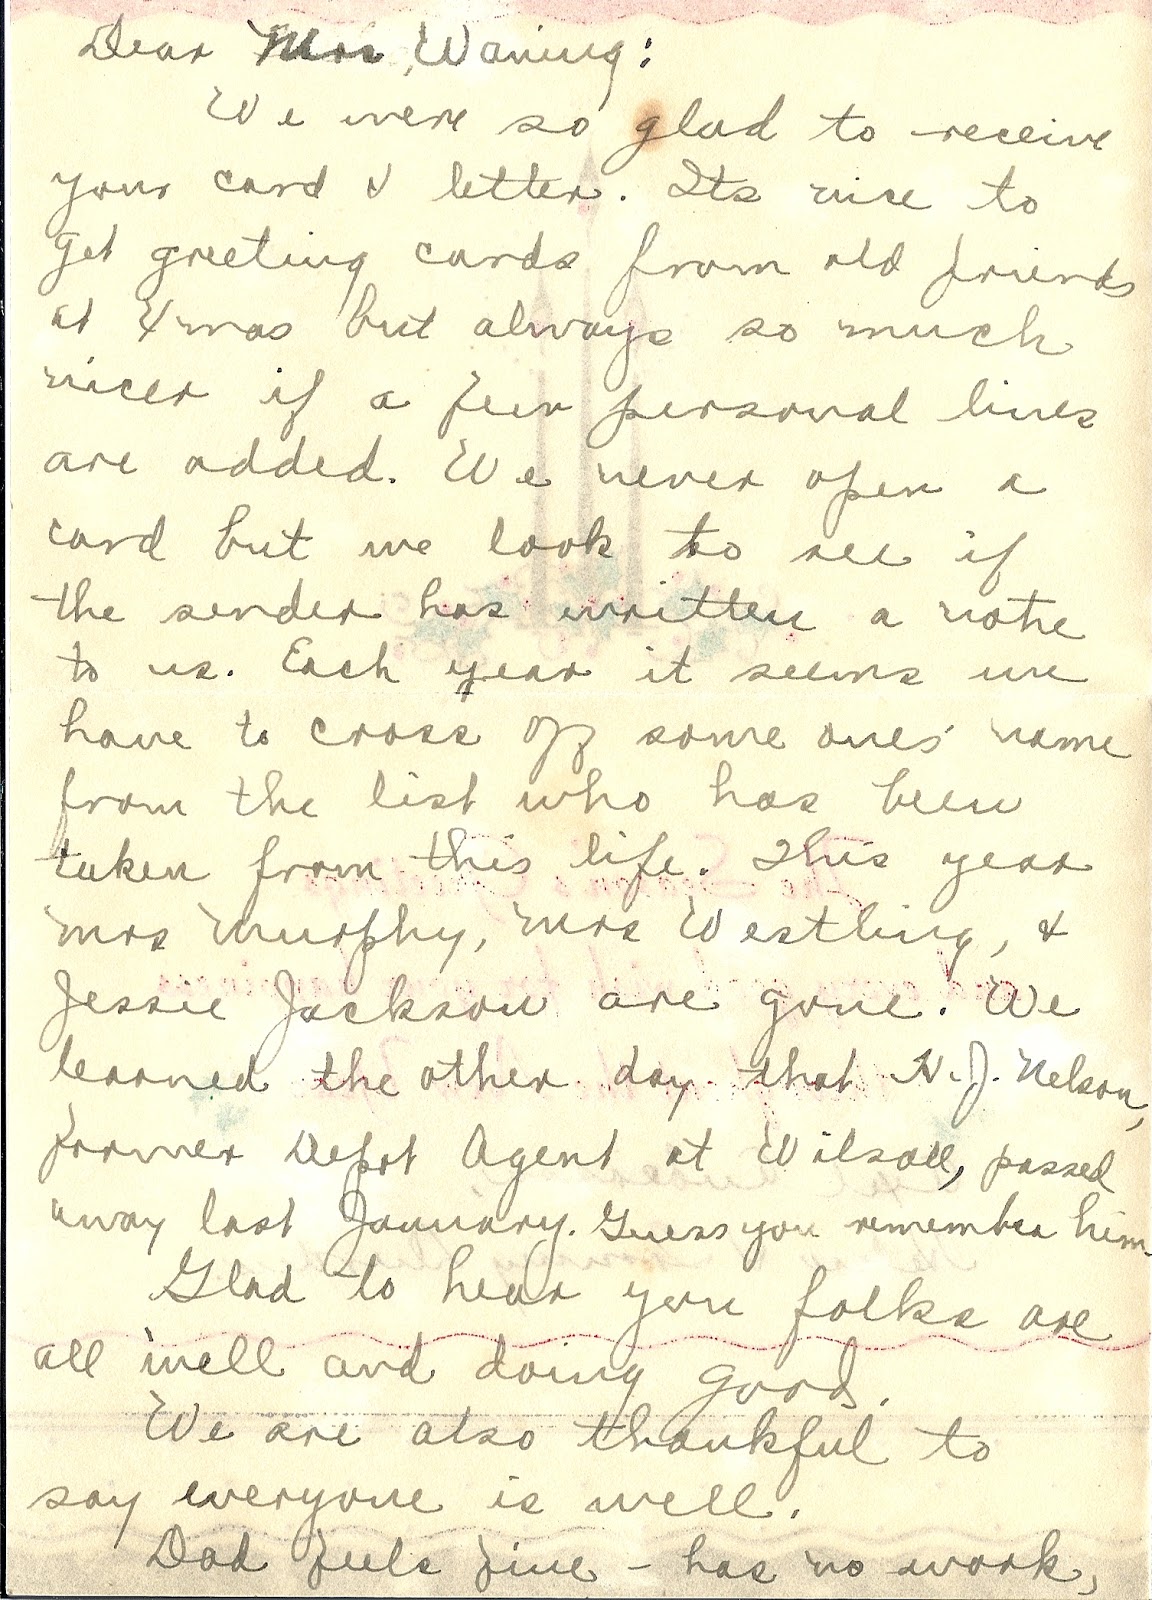 Dear Mrs, Waning:
We were so glad to receive
your card & letter. Its nice to
get greeting cards from old friends
at Xmas but always so much
nicer if a few personal lines
are added. We never open a
card but we look to see if
the sender has written a note
to us. Each year it seems we
have to cross off some ones' name
from the list who has been
taken from this life. This year
Mrs Murphy, Mrs Westling, &
Jessie Jackson are gone. We
learned the other day that N. J. Nelson,
former Depot Agent at Wilsall, passed
away last January. Guess you remember him.
Glad to hear you folks are
all well and doing good.
We are also thankful to
say everyone is well.
Dad feels fine – has no work,